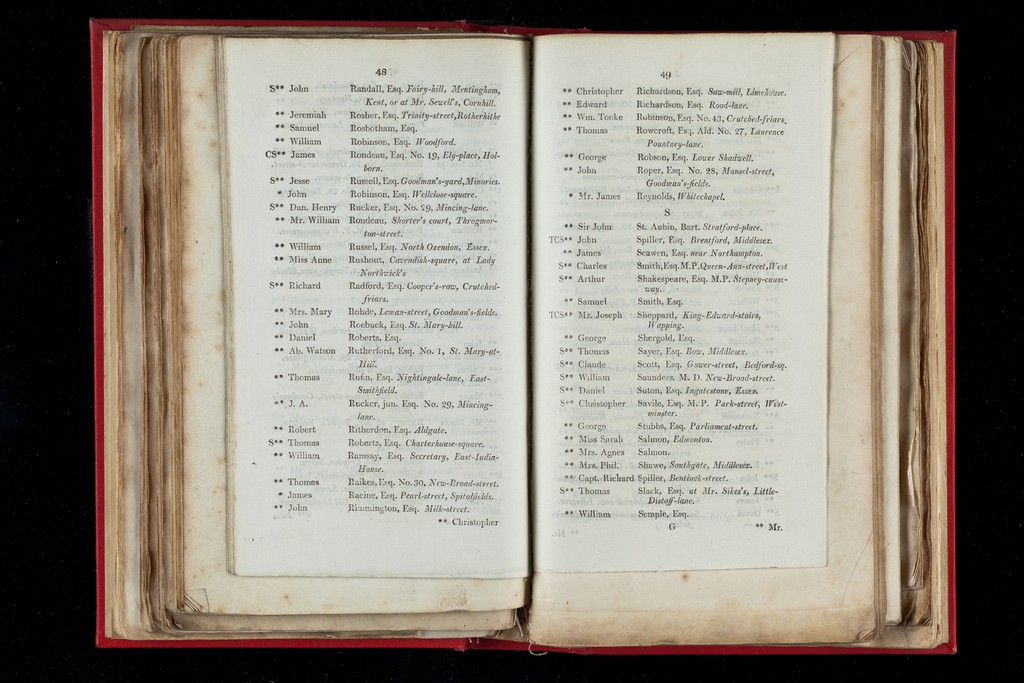 48
S** John Randall, Esq. Fairy-hill, Mentingham,
Kent, or at Mr. Sewell's, Cornhill.
** Jeremiah Rosher, Esq. Trinity-street, Rotherhithe
** Samuel Rosbotham, Esq.
** William Robinson, Esq. Woodford.
CS** James Rondeau, Esq. No. 19, Ely-place, Hol-
born.
S** Jesse Russell, Esq. Goodman's-yard, Minories.
* John Robinson, Esq. Wellclose-square.
S** Dan. Henry Rucker, Esq. No. 29, Mincing-lane.
** Mr. William Rondeau, Shorter's court, Throgmor-
ton-street.
** William Russel, Esq. North Oxendon, Essex.
** Miss Anne Rushout, Cavendish-square, at Lady
Northwick's
S** Richard Radford, Esq. Cooper's-row, Crutched-
friars.
** Mrs. Mary Rohde, Leman-street, Goodman's-fields.
** John Roebuck, Esq. St. Mary-hill.
** Daniel Roberts, Esq.
** Ab. Watson Rutherford, Esq. No. 1, St. Mary-at-
Hill.
** Thomas Rufin, Esq. Nightingale-lane, East-
Smithfield.
** J. A. Rucker, jun. Esq. No. 29, Mincing-
lane.
** Robert Ritherdon, Esq. Aldgate.
S** Thomas Roberts, Esq. Charterhouse-square.
** William Ramsay, Esq. Secretary, East-India-
House.
** Thomas Raikes, Esq. No. 30, New-Broad-street.
* James Racine, Esq. Pearl-street, Spitalfields.
** John Rimmington, Esq. Milk-street.
** Christopher
49
** Christopher Richardson, Esq. Saw-mill, Limehouse.
** Edward Richardson, Esq. Rood-lane.
** Wm. Tooke Robinson, Esq. No. 43, Crutched-friars.
** Thomas Rowcroft, Esq. Ald. No. 27, Laurence
Pountney-lane.
** George Robson, Esq. Lower Shadwell.
** John Roper, Esq. No. 28, Mansel-street,
Goodman's-fields.
* Mr. James Reynolds, Whitechapel.
S
** Sir John St. Aubin, Bart. Stratford-place.
TCS** John Spiller, Esq. Brentford, Middlesex.
** James Scawen, Esq. near Northampton.
S** Charles Smith, Esq. M.P. Queen-Ann-street, West
S** Arthur Shakespeare, Esq. M.P. Stepney-cause-
way.
** Samuel Smith, Esq.
TCS** Mr. Joseph Sheppard, King-Edward-stairs,
Wapping.
** George Shergold, Esq.
S** Thomas Sayer, Esq. Bow, Middlesex.
S** Claude Scott, Esq. Gower-street, Bedford-sq.
S** William Saunders, M. D. New-Broad-street.
S** Daniel Suton, Esq. Ingatestone, Essex.
S** Christopher Savile, Esq. M. P. Park-street, West-
minster.
** George Stubbs, Esq. Parliament-street.
** Miss Sarah Salmon, Edmonton.
** Mrs. Agnes Salmon.
** Mrs. Phil. Shawe, Southgate, Middlesex.
** Capt. Richard Spiller, Bentinck-street.
S** Thomas Slack, Esq. at Mr. Sikes's, Little-
Distaff-lane.
** William Semple, Esq.
G ** Mr.